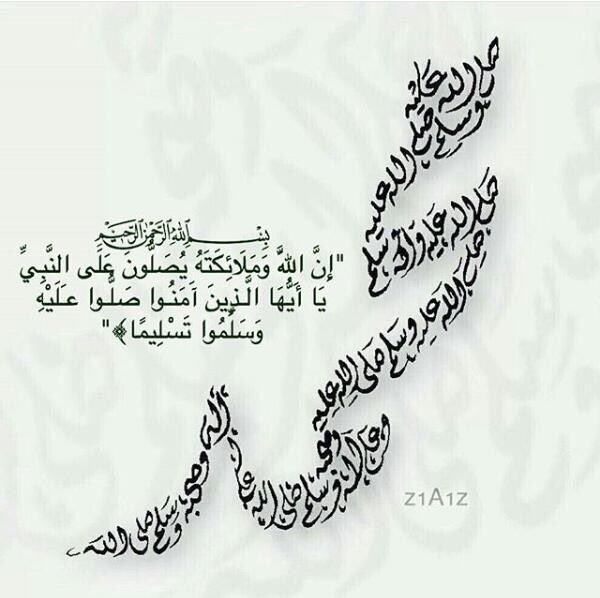 صلى الله عليه
وسلم صلى
الله عليه
وسلم
صلى الله عليه وآله
صلى الله عليه وسلم صلى الله عليه
وعلى آله وصحبه وسلم صلى الله عليه
وعلى آله وصحبه وسلم صلى الله
بسم الله الرحمن الرحيم
"إِنَّ اللَّهَ وَمَلَائِكَتَهُ يُصَلُّونَ عَلَى النَّبِيِّ
يَا أَيُّهَا الَّذِينَ آمَنُوا صَلُّوا عَلَيْهِ
وَسَلِّمُوا تَسْلِيمًا﴾"
z1A1z